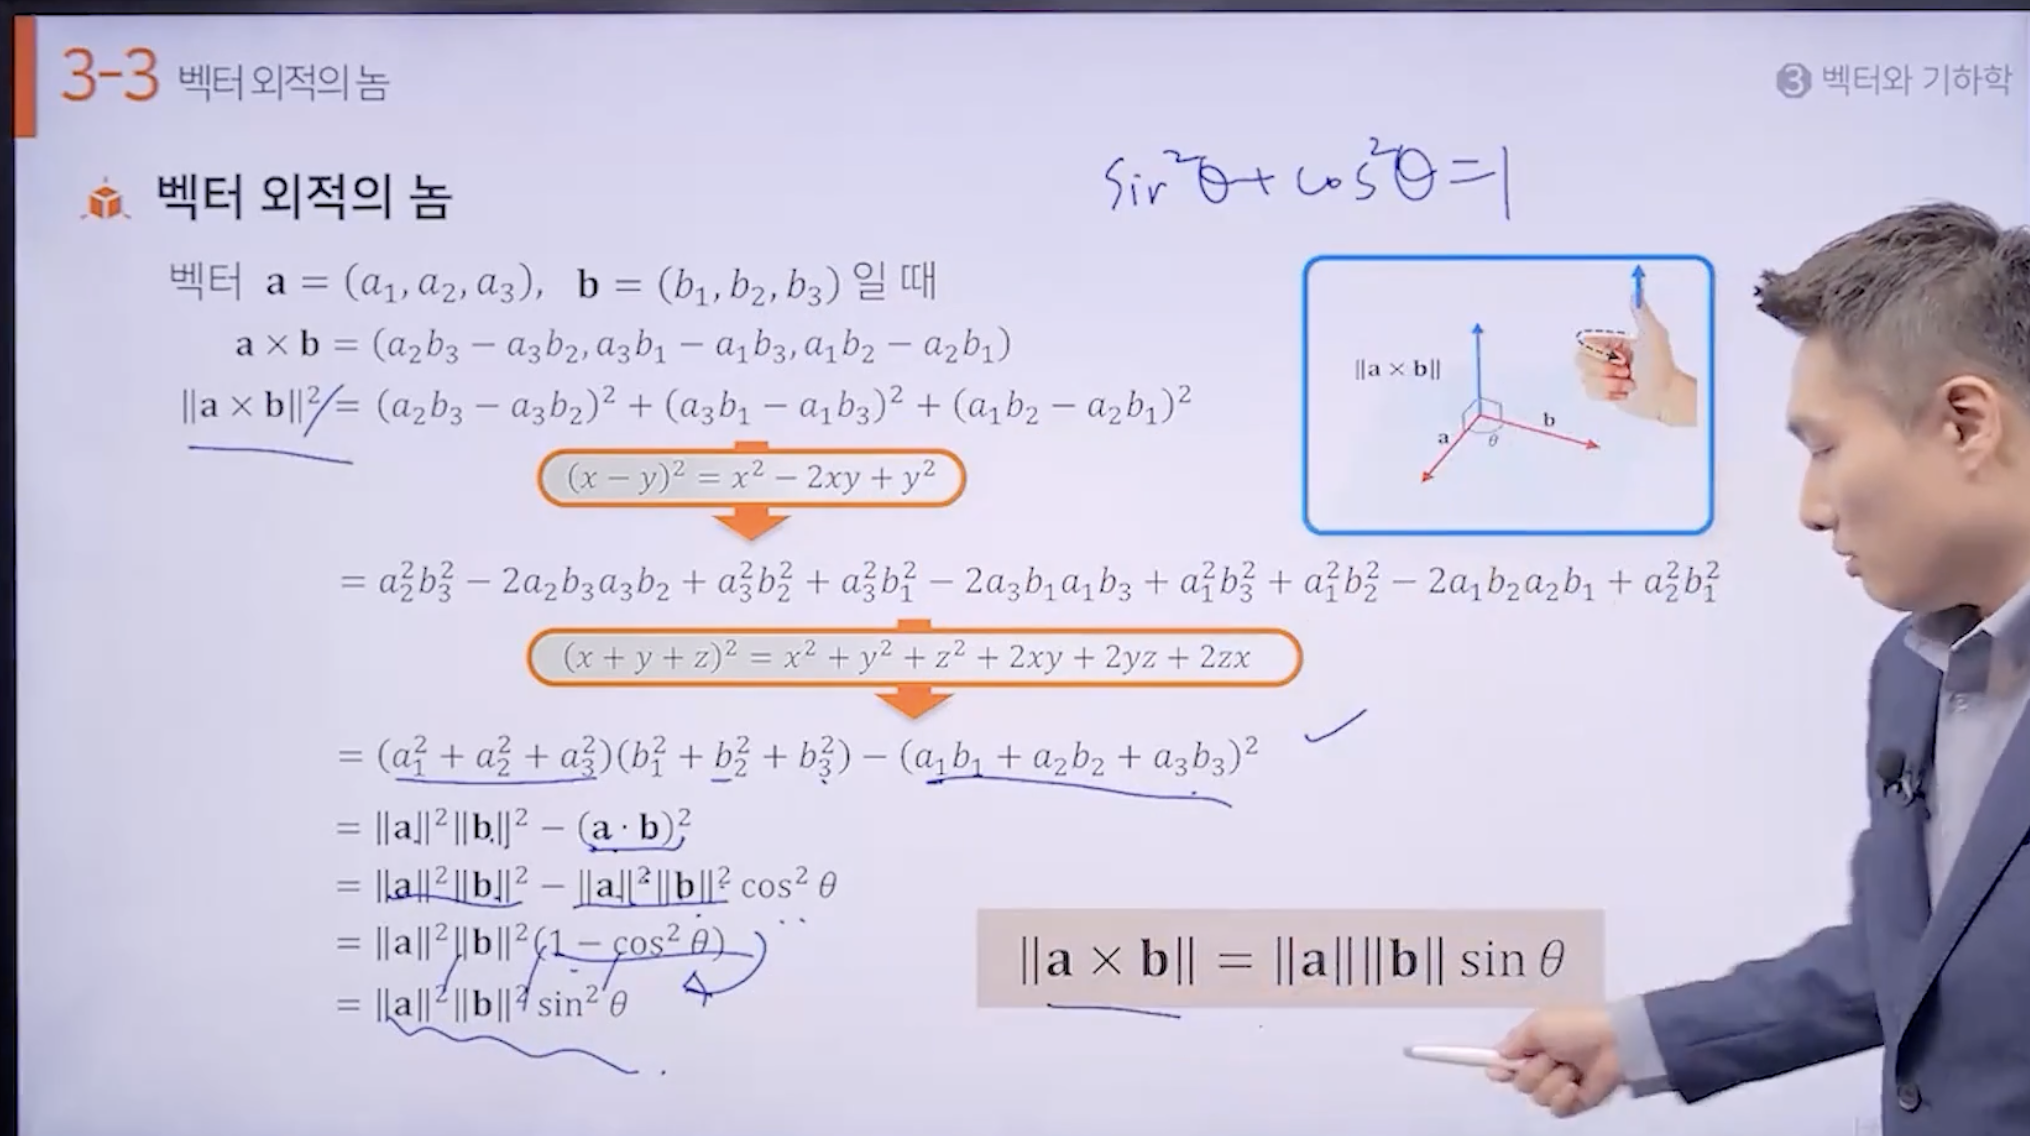 3-3 벡터 외적의 놈
③ 벡터와 기하학
벡터 외적의 놈
sin²θ + cos²θ = 1
벡터 a = (a₁, a₂, a₃), b = (b₁, b₂, b₃) 일 때
a × b = (a₂b₃ − a₃b₂, a₃b₁ − a₁b₃, a₁b₂ − a₂b₁)
‖a × b‖² = (a₂b₃ − a₃b₂)² + (a₃b₁ − a₁b₃)² + (a₁b₂ − a₂b₁)²
‖a × b‖
a
θ
b
(x − y)² = x² − 2xy + y²
= a₂²b₃² − 2a₂b₃a₃b₂ + a₃²b₂² + a₃²b₁² − 2a₃b₁a₁b₃ + a₁²b₃² + a₁²b₂² − 2a₁b₂a₂b₁ + a₂²b₁²
(x + y + z)² = x² + y² + z² + 2xy + 2yz + 2zx
= (a₁² + a₂² + a₃²)(b₁² + b₂² + b₃²) − (a₁b₁ + a₂b₂ + a₃b₃)²
= ‖a‖²‖b‖² − (a · b)²
= ‖a‖²‖b‖² − ‖a‖²‖b‖² cos² θ
= ‖a‖²‖b‖²(1 − cos² θ)
= ‖a‖²‖b‖² sin² θ
‖a × b‖ = ‖a‖‖b‖ sin θ